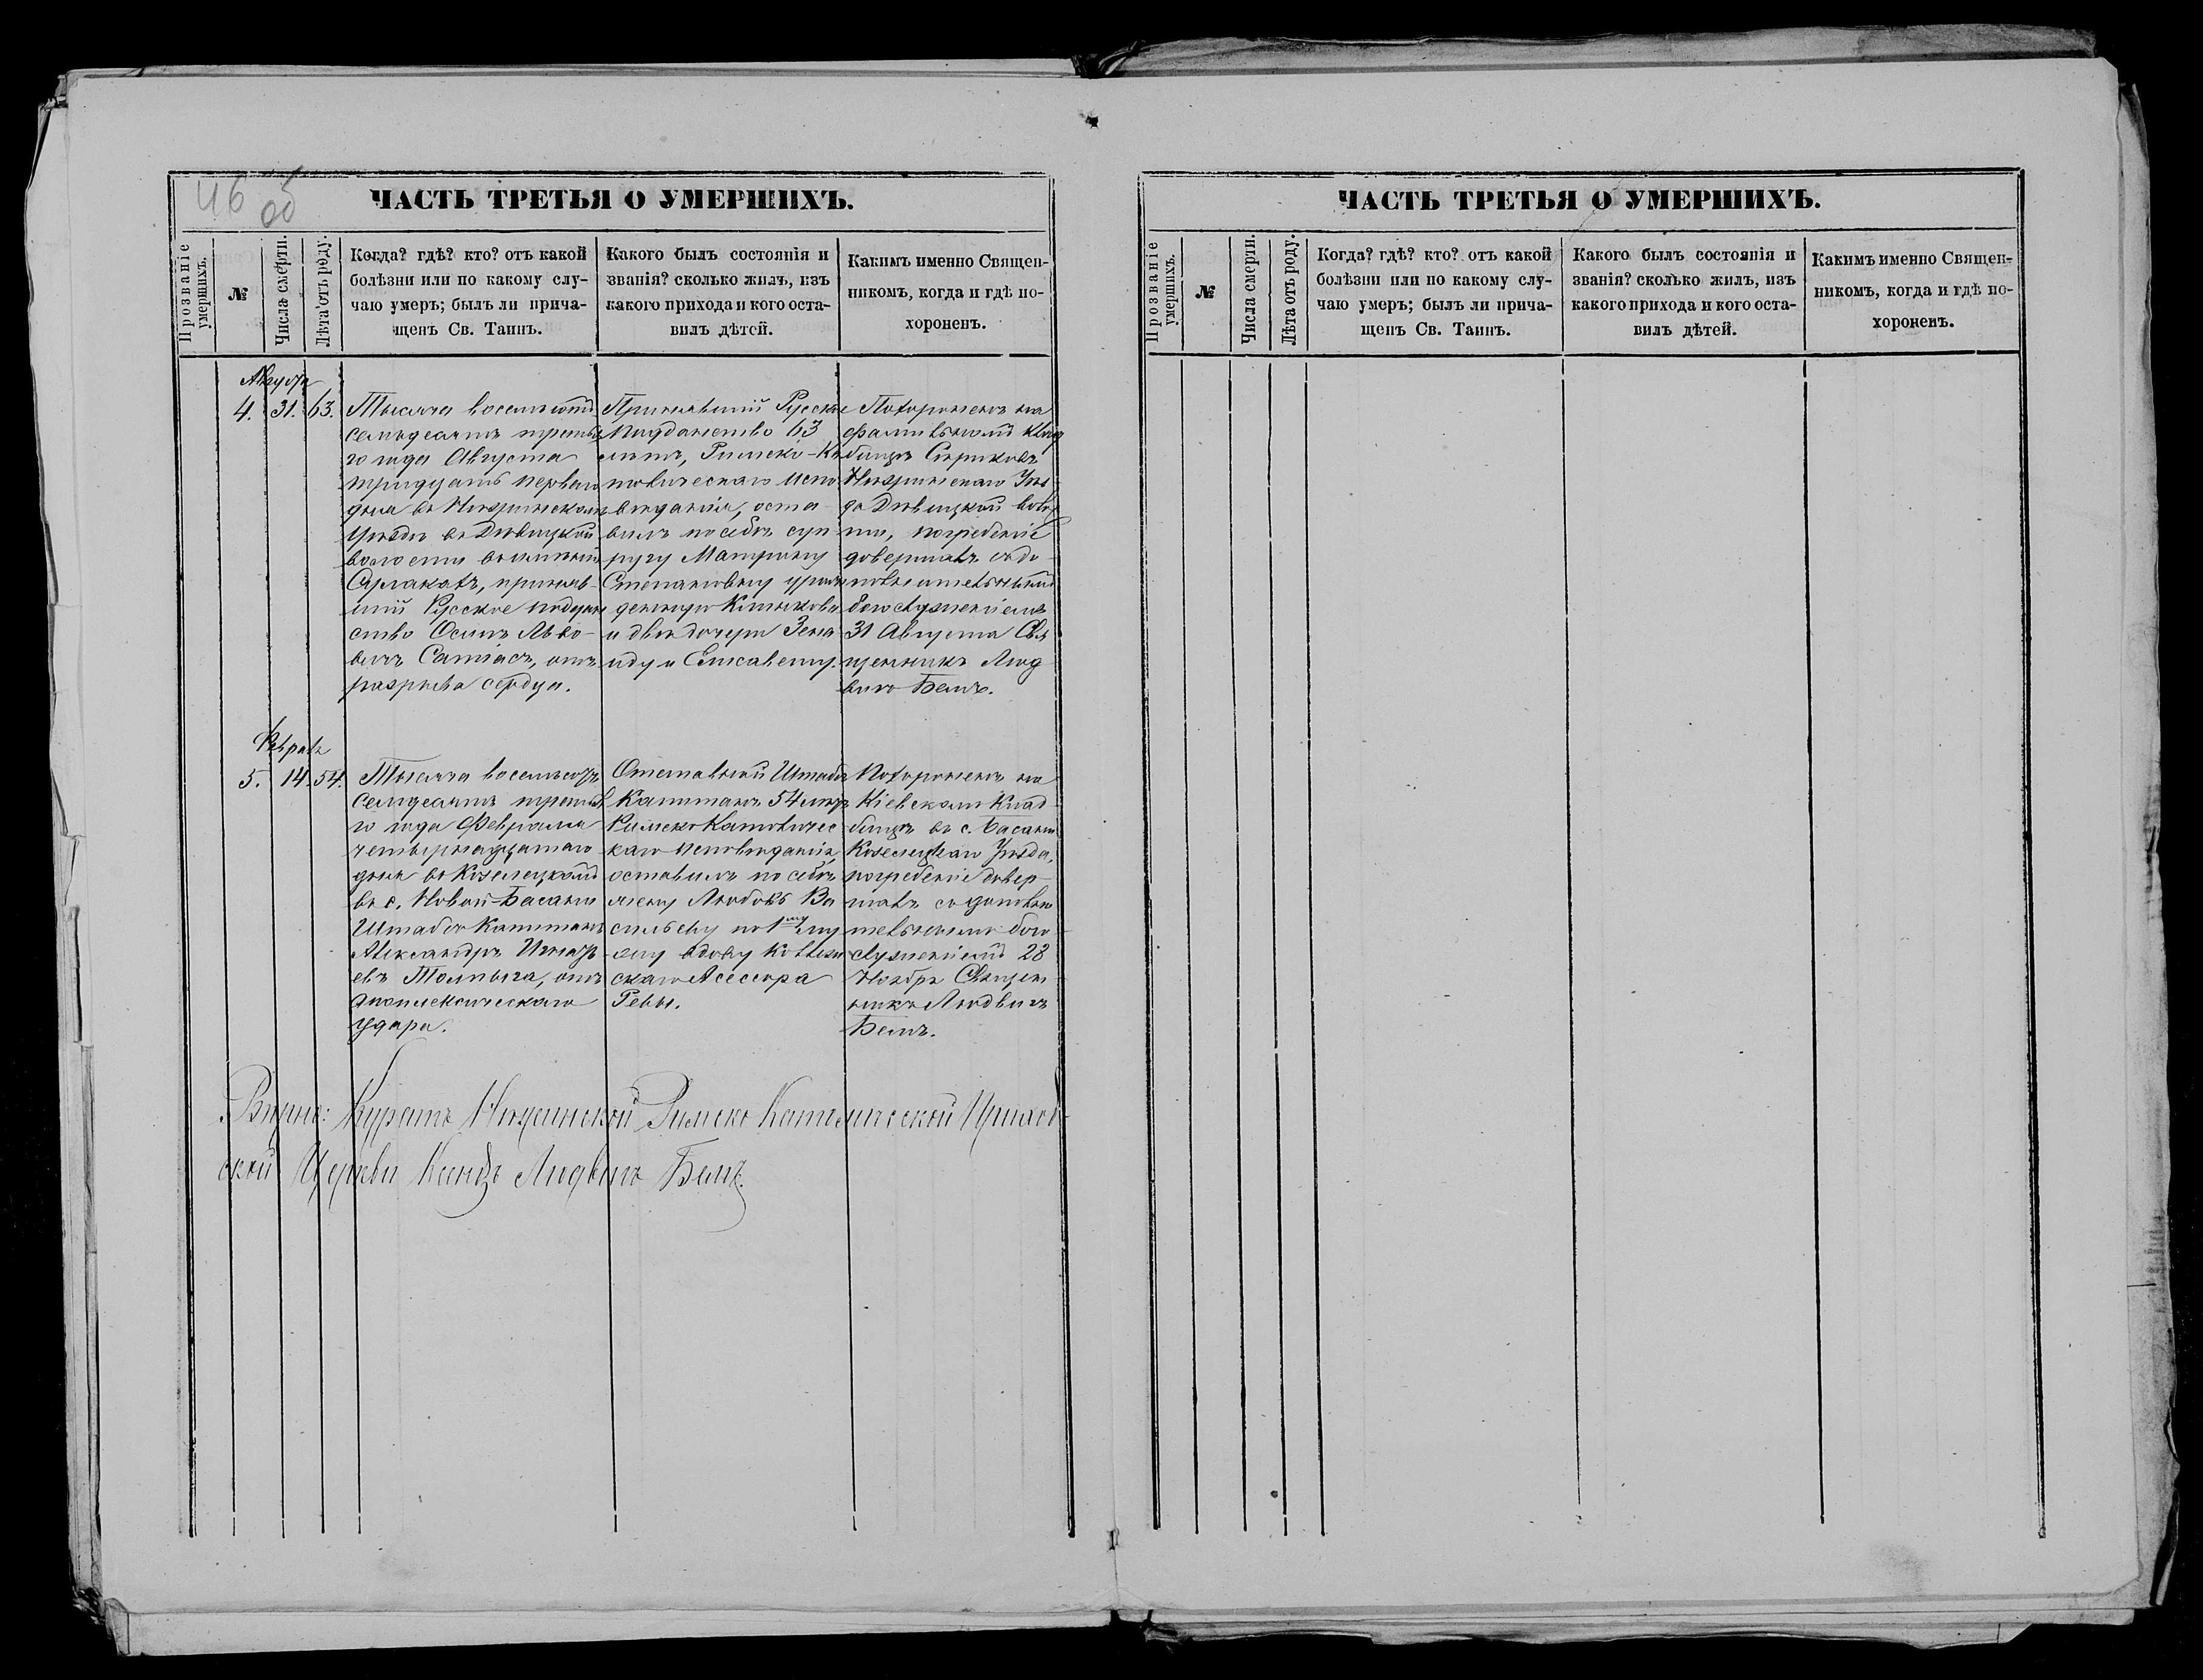 46 об
ЧАСТЬ ТРЕТЬЯ О УМЕРШИХЪ.
Прозваніе умершихъ.
№
Числа смерти.
Лѣта отъ роду.
Когда? гдѣ? кто? отъ какой
болѣзни или по какому слу-
чаю умеръ; былъ ли прича-
щенъ Св. Таинъ.
Какого былъ состоянія и
званія? сколько жилъ, изъ
какого прихода и кого оста-
вилъ дѣтей.
Какимъ именно Священ-
никомъ, когда и гдѣ по-
хороненъ.
Августа
4. 31. 63.
Тысяча восемьсотъ
семьдесятъ третья
го года Августа
тридцать перваго
дня въ Нѣжинскомъ
Уѣздѣ въ Дѣвицкой
волости въ имѣніи
приняв-
шій Русское поддан
ство Осипъ Льво-
вичъ Саміасъ, отъ
разрыва сердца.
Принявшій Русское
подданство 63
лѣтъ, Римско-Ка
толическаго испо
вѣданія, оста
вилъ по себѣ суп
ругу Матрону
Степановну урож
денную
и двѣ дочери Зена
иду и Елисавету.
Похороненъ на
фамильномъ клад
бищѣ
Нѣжинскаго Уѣз
да Дѣвицкой волос
ти, погребеніе
довершалъ съ до
полнительнымъ
богослуженіемъ
31 Августа Свя
щенникъ Люд
вигъ Бемъ.
Февраль
5. 14. 54.
Тысяча восемьсотъ
семдесятъ третья
го года Февраля
четырнадцатаго
дня въ Козелецкомъ
въ с. Новой-Басани
Штабсъ Капитанъ
Александръ Игнать
евъ Толпыга, отъ
апоплексическаго
удара.
Отставной Штабсъ
Капитанъ 54 лѣтъ
Римско Католичес
каго исповѣданія,
оставилъ по себѣ
жену Любовь Ва
сильеву по 1му му
жу вдову Коллеж
скаго Асессора
Ревы.
Похороненъ на
Кіевскомъ Клад
бищѣ въ с. Басани
Козелецкаго Уѣзда,
погребеніе довер-
шалъ съ дополни
тельнымъ бого
служеніемъ 28
Ноября Священ
никъ Людвигъ
Бемъ.
Вѣрно: Куратъ Нѣжинской Римско Католической Приход-
ской Церкви Ксендзъ Людвигъ Бемъ.
ЧАСТЬ ТРЕТЬЯ О УМЕРШИХЪ.
Прозваніе умершихъ.
№
Числа смерти.
Лѣта отъ роду.
Когда? гдѣ? кто? отъ какой
болѣзни или по какому слу-
чаю умеръ; былъ ли прича-
щенъ Св. Таинъ.
Какого былъ состоянія и
званія? сколько жилъ, изъ
какого прихода и кого оста-
вилъ дѣтей.
Какимъ именно Священ-
никомъ, когда и гдѣ по-
хороненъ.